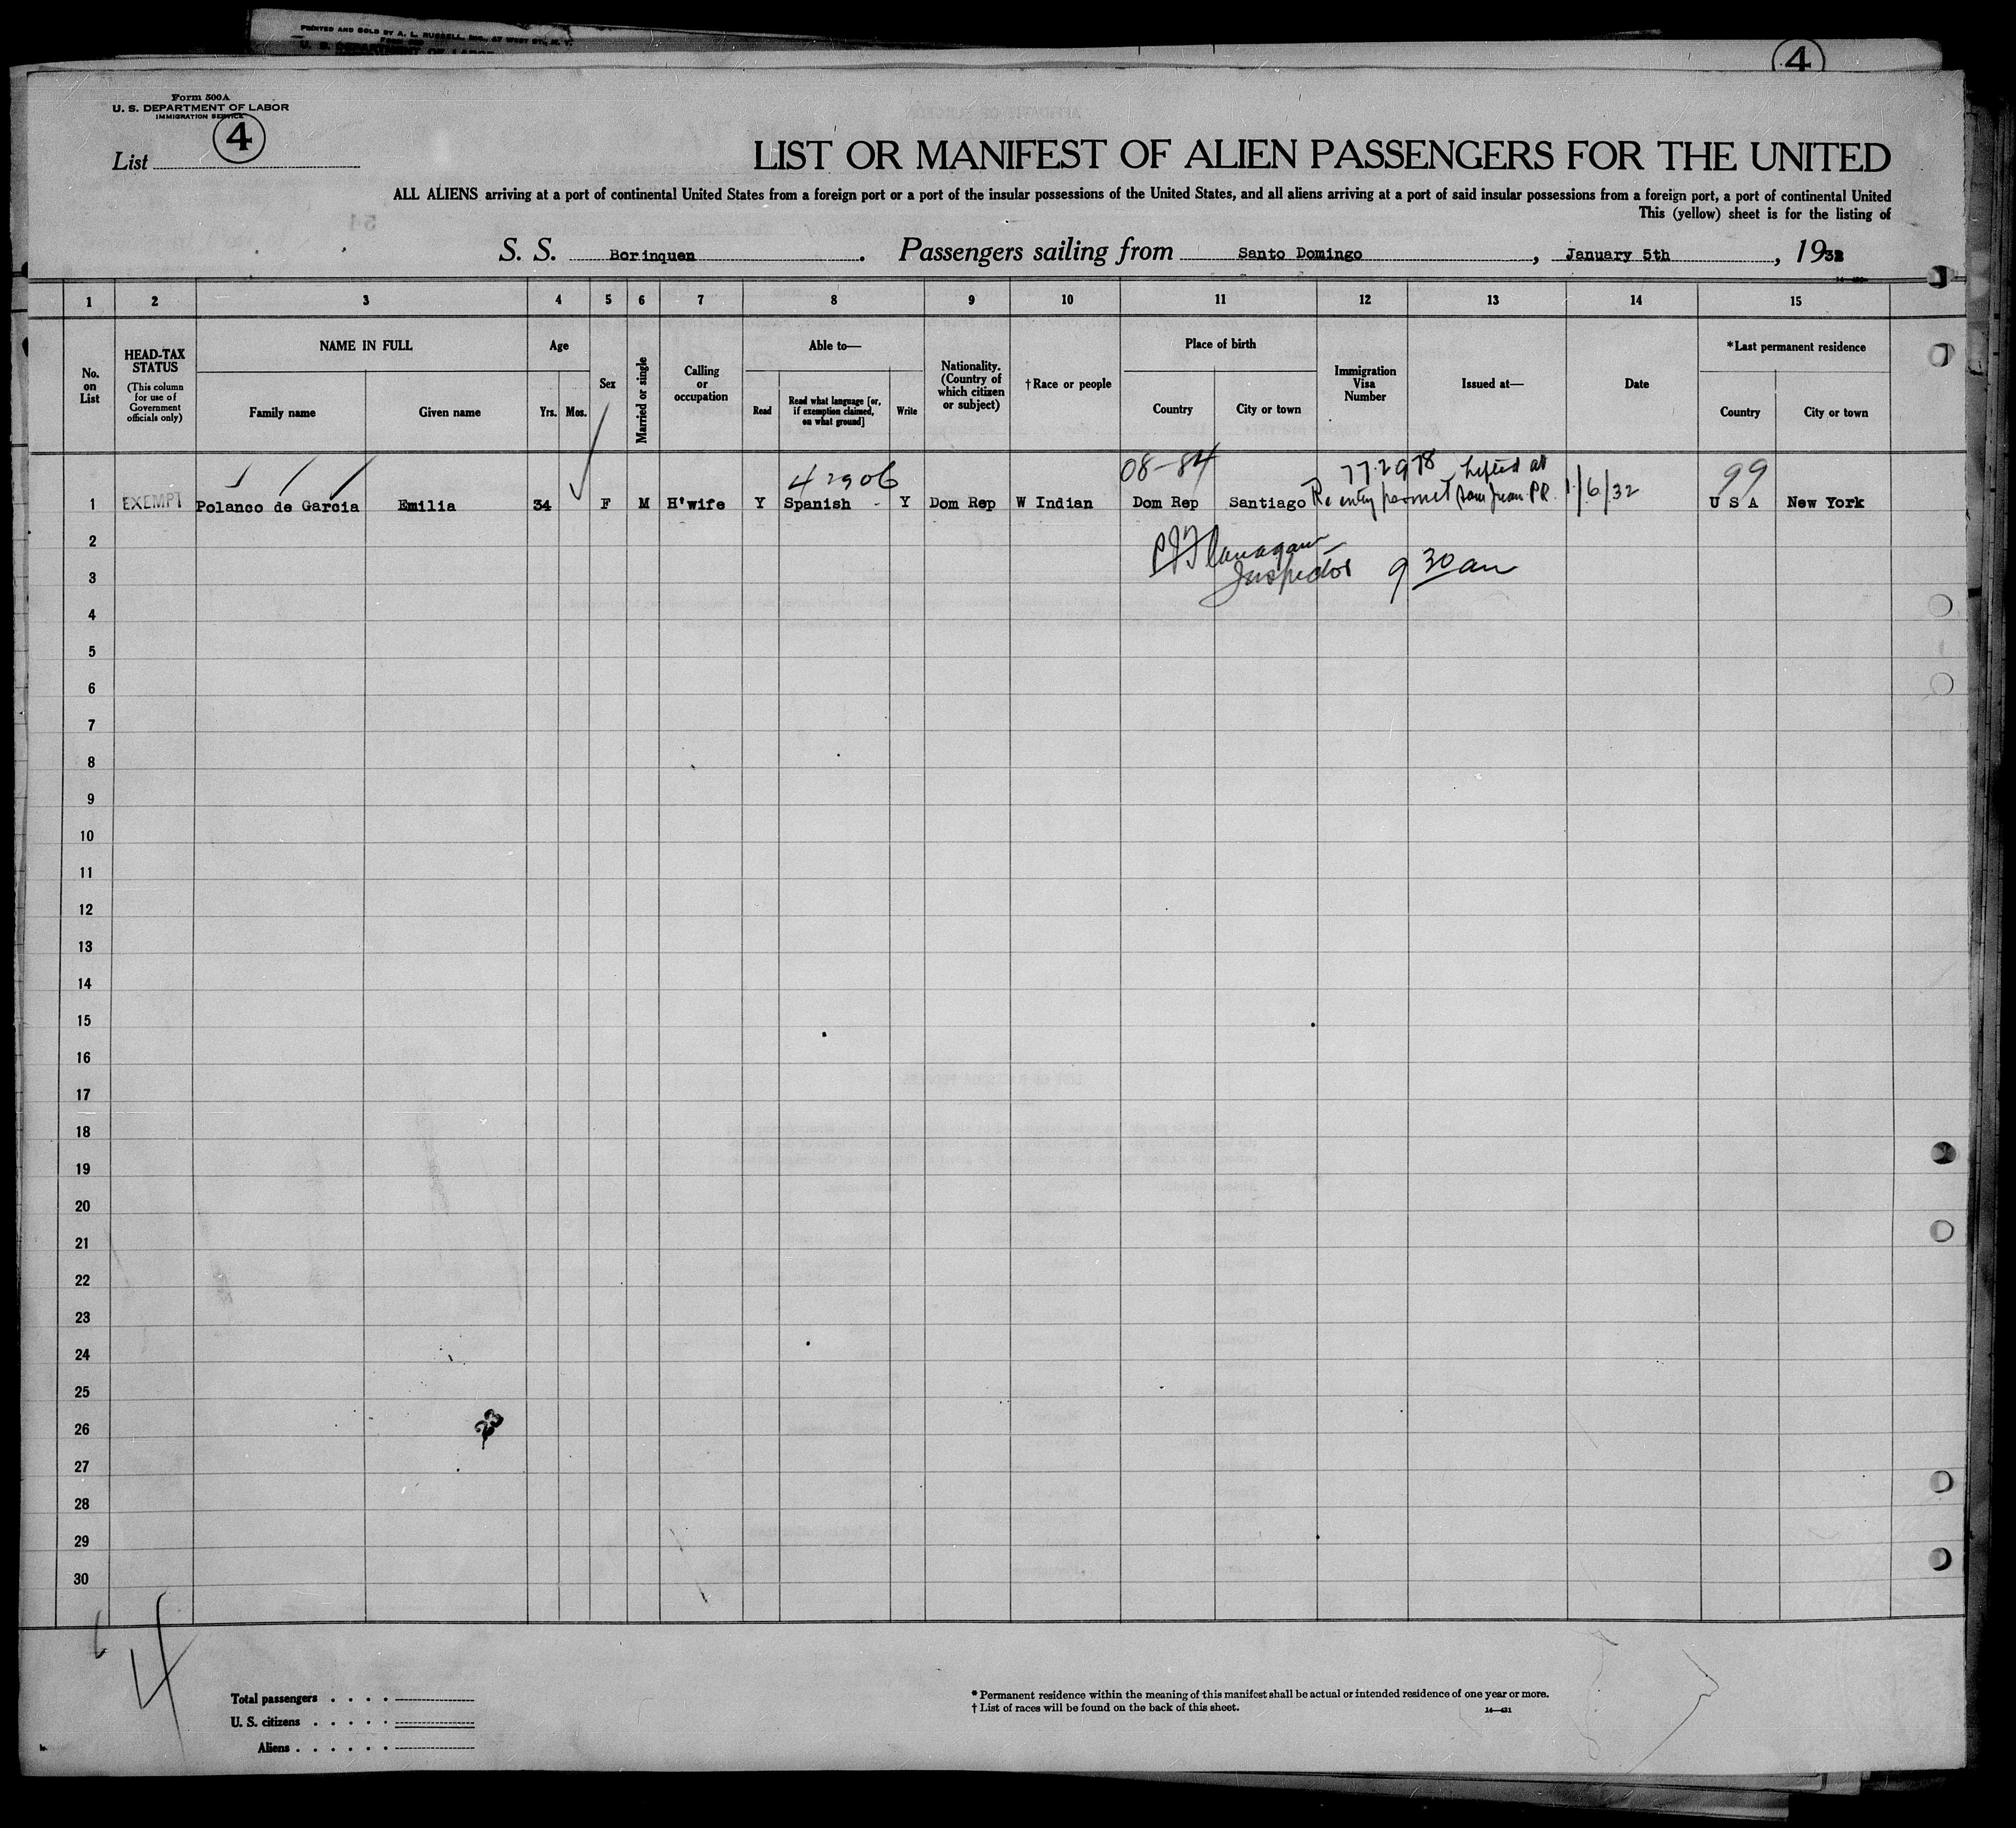 PRINTED AND SOLD BY A. L. RUSSELL, INC., AT WEST ST., N. Y.
U. S. DEPARTMENT OF LABOR
4
Form 500A
U. S. DEPARTMENT OF LABOR
IMMIGRATION SERVICE
List 4
LIST OR MANIFEST OF ALIEN PASSENGERS FOR THE UNITED
ALL ALIENS arriving at a port of continental United States from a foreign port or a port of the insular possessions of the United States, and all aliens arriving at a port of said insular possessions from a foreign port, a port of continental United
This (yellow) sheet is for the listing of
S. S. Borinquen. Passengers sailing from Santo Domingo, January 5th, 1932
1 2 3 4 5 6 7 8 9 10 11 12 13 14 15
No. on List
HEAD-TAX STATUS
(This column for use of Government officials only)
NAME IN FULL
Family name
Given name
Age
Yrs.
Mos.
Sex
Married or single
Calling or occupation
Able to—
Read
Read what language [or, if exemption claimed, on what ground]
Write
Nationality. (Country of which citizen or subject)
† Race or people
Place of birth
Country
City or town
Immigration Visa Number
Issued at—
Date
*Last permanent residence
Country
City or town
42906 08-84 772978 Lifted at 99
1 EXEMPT Polanco de Garcia Emilia 34 F M H'wife Y Spanish - Y Dom Rep W Indian Dom Rep Santiago Re entry permit San Juan P.R. 1/6/32 U S A New York
2 Flanagan
3 Inspector 9 30 am
4
5
6
7
8
9
10
11
12
13
14
15
16
17
18
19
20
21
22
23
24
25
26
27
28
29
30
4
Total passengers . . . .
U. S. citizens . . . . .
Aliens . . . . . .
* Permanent residence within the meaning of this manifest shall be actual or intended residence of one year or more.
† List of races will be found on the back of this sheet.
14—431